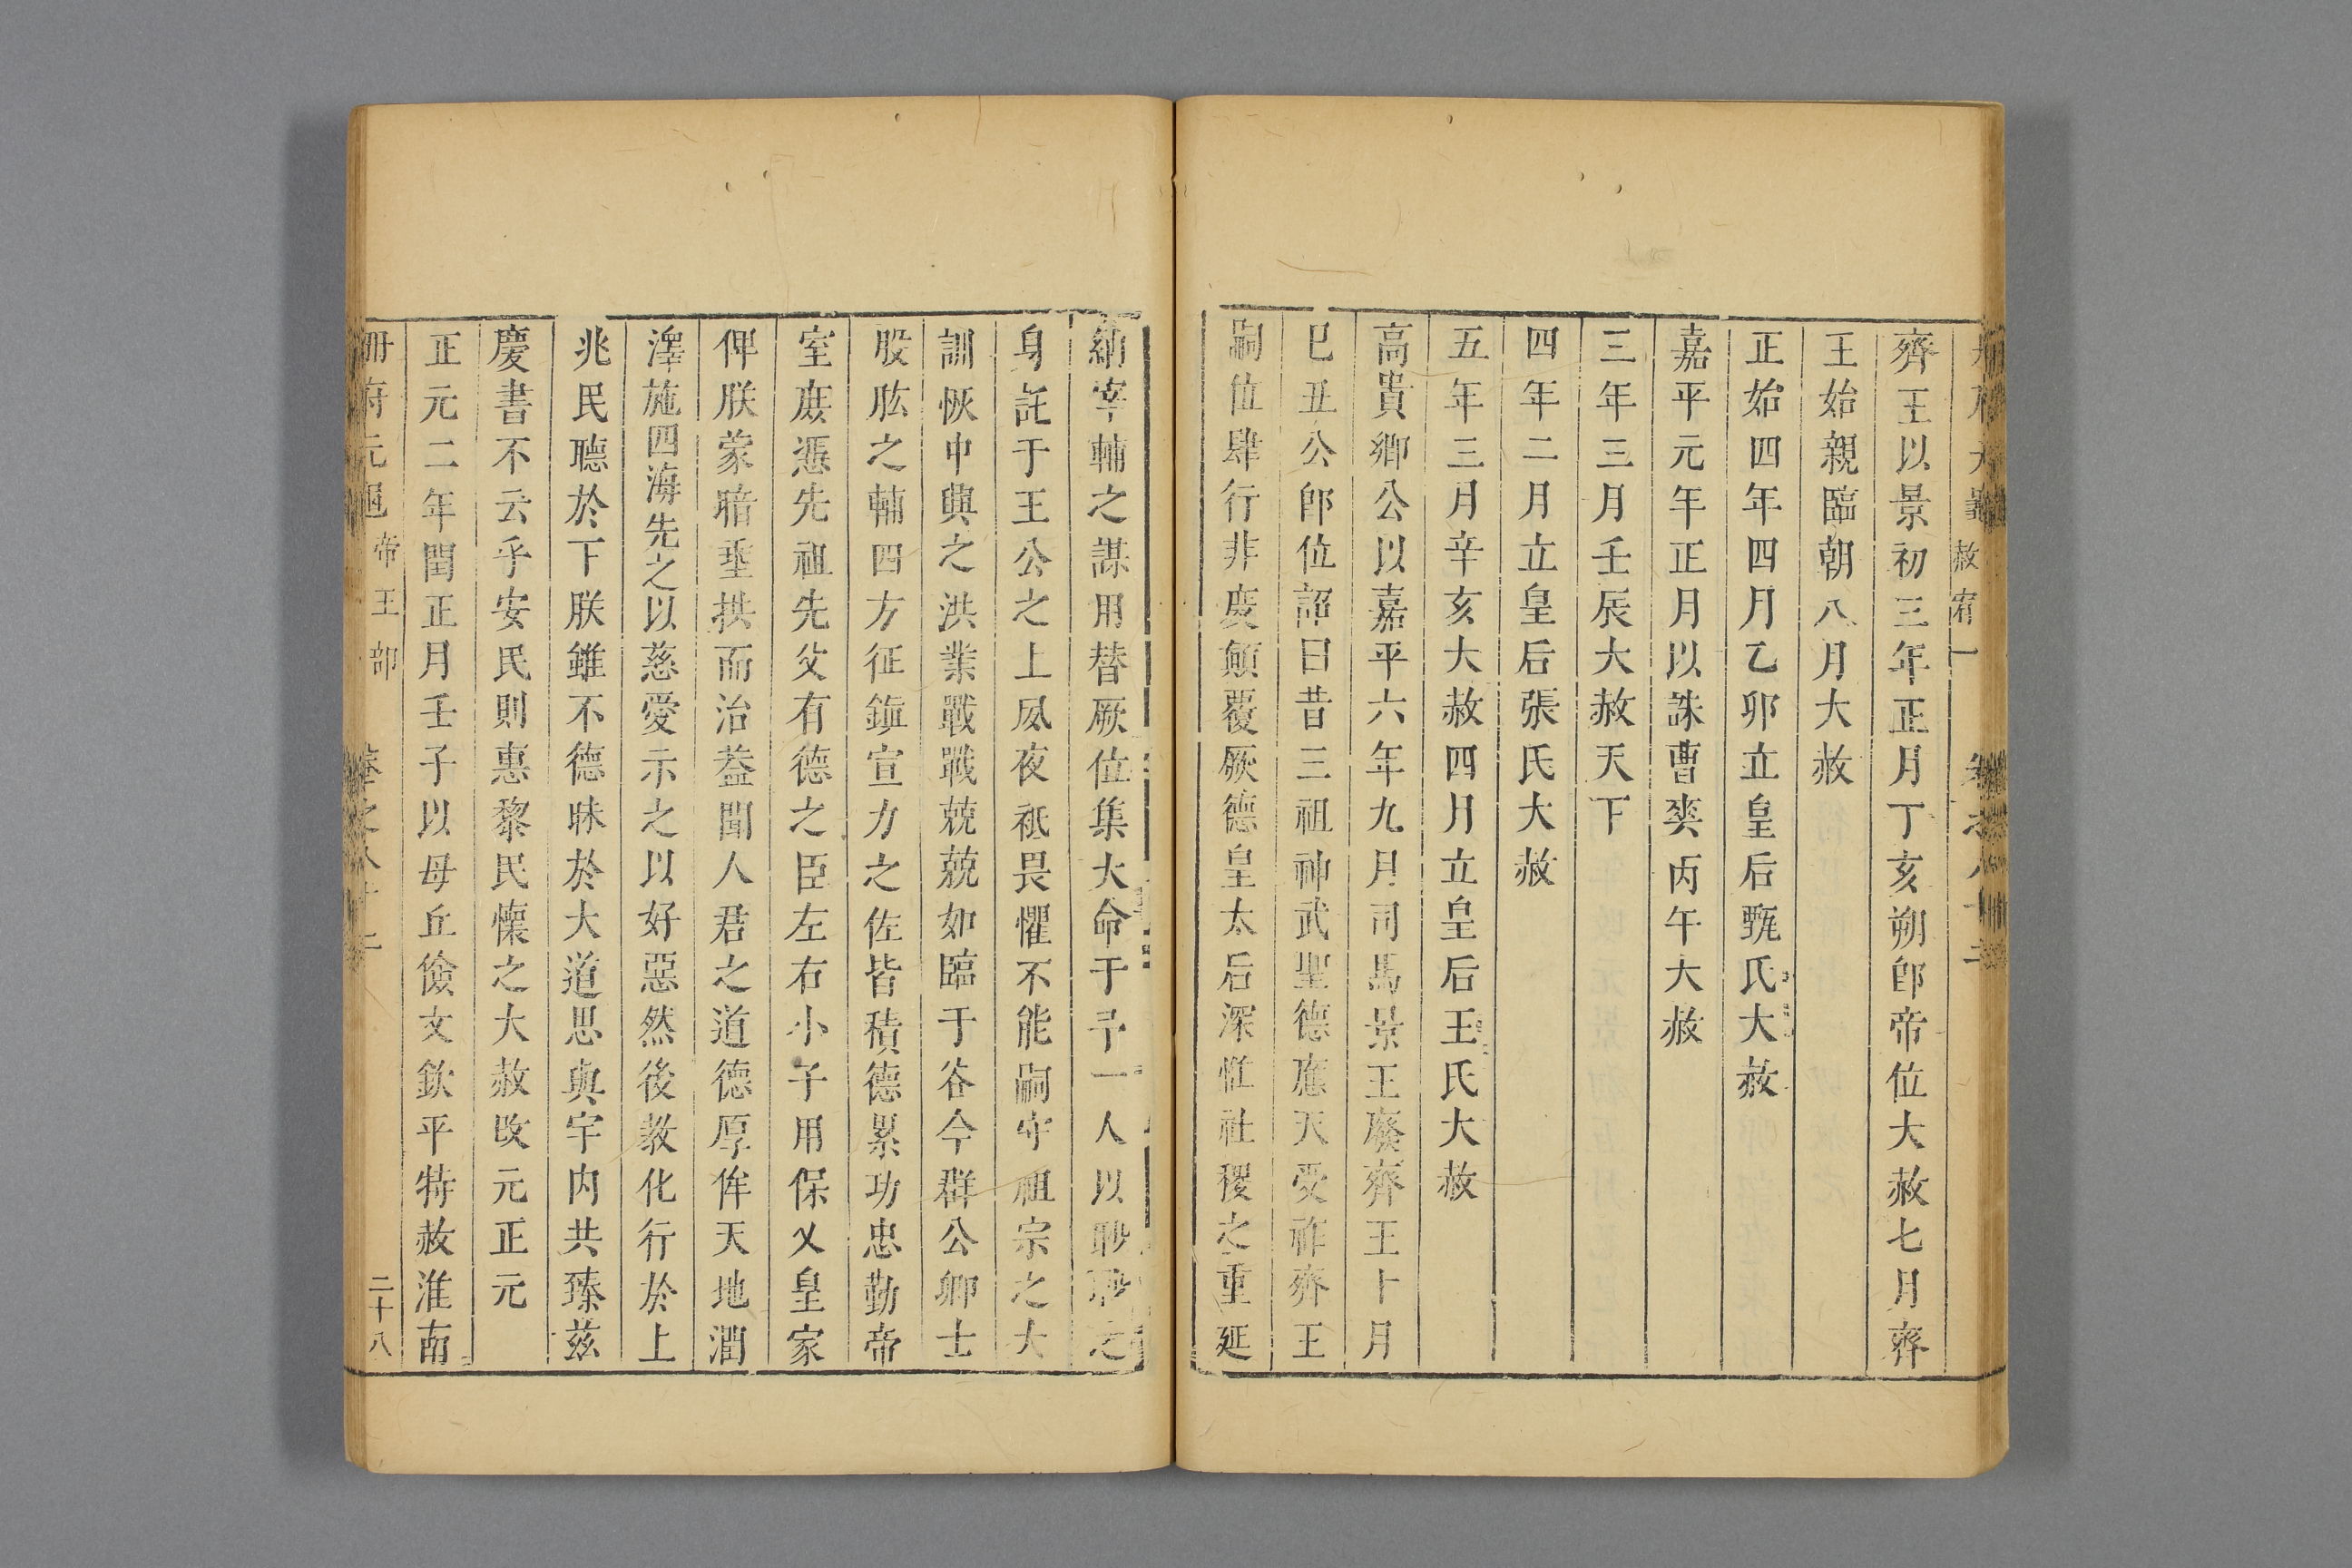 冊府元龜 赦宥一 卷之八十二
齊王以景初三年正月丁亥朔卽帝位大赦七月齊
王始親臨朝八月大赦
正始四年四月乙卯立皇后甄氏大赦
嘉平元年正月以誅曹爽丙午大赦
三年三月壬辰大赦天下
四年二月立皇后張氏大赦
五年三月辛亥大赦四月立皇后王氏大赦
高貴鄉公以嘉平六年九月司馬景王廢齊王十月
巳丑公卽位詔曰昔三祖神武聖德應天受祚齊王
嗣位肆行非度顛覆厥德皇太后深惟社稷之重延
納宰輔之謀用替厥位集大命于予一人以眇眇之
身託于王公之上夙夜祗畏懼不能嗣守祖宗之大
訓恢中興之洪業戰戰兢兢如臨于谷今群公卿士
股肱之輔四方征鎮宣力之佐皆積德累功忠勤帝
室庶憑先祖先父有德之臣左右小子用保乂皇家
俾朕蒙暗垂拱而治葢聞人君之道德厚侔天地潤
澤施四海先之以慈愛示之以好惡然後教化行於上
兆民聽於下朕雖不德昧於大道思與宇內共臻茲
慶書不云乎安民則惠黎民懷之大赦改元正元
正元二年閏正月壬子以母丘儉文欽平特赦淮南
冊府元龜 帝王部 卷之八十二 二十八